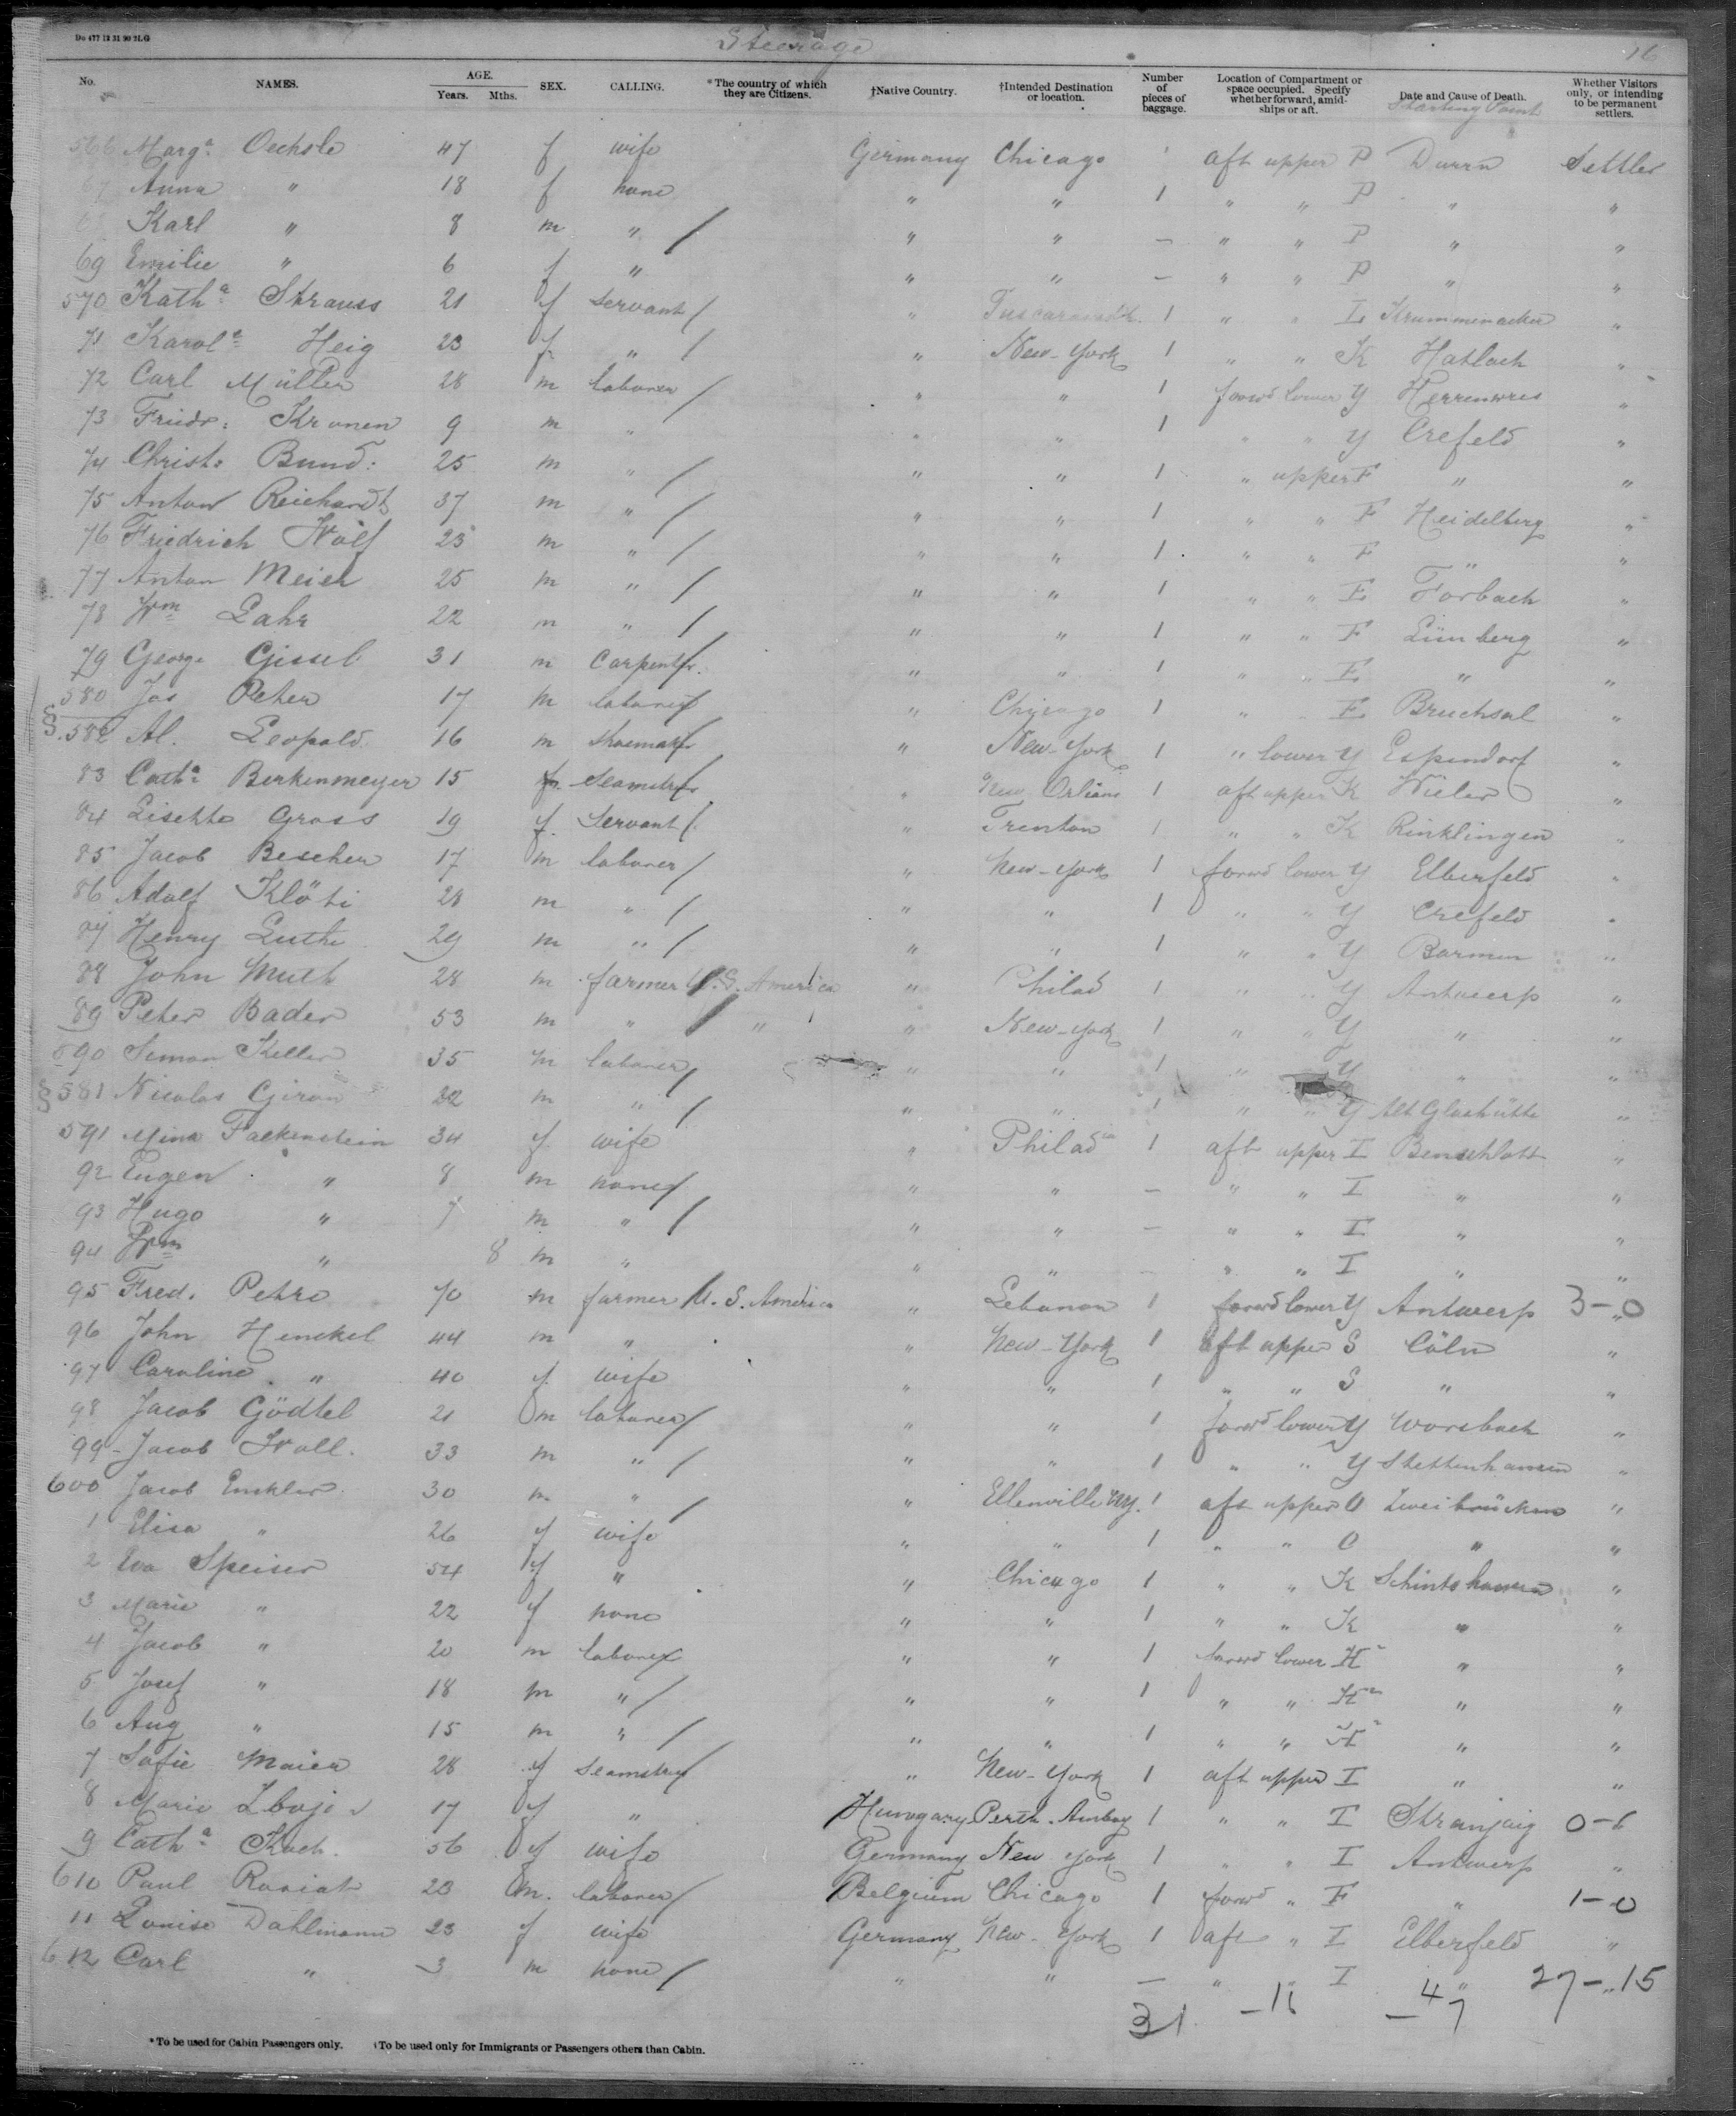 Do 477 12 31 90 2L.G
Steerage
16
No. NAMES. AGE. Years. Mths. SEX. CALLING. *The country of which they are Citizens. †Native Country. †Intended Destination or location. Number of pieces of baggage. Location of Compartment or space occupied. Specify whether forward, amidships or aft. Date and Cause of Death. Starting Point Whether Visitors only, or intending to be permanent settlers.
566 Marga Oechsle 47 f wife Germany Chicago aft upper P Durrn Settler
67 Anna " 18 f none " " 1 " " P " "
68 Karl " 8 m " " " - " " P " "
69 Emilie " 6 f " " " - " " P " "
570 Katha Strauss 21 f Servant " 1 " " I Krummenacker "
71 Karola Heig 23 f " " New-York 1 " " K Haslach "
72 Carl Müller 28 m laborer " " 1 forwd lower Y "
73 Friedr: Kronen 9 m " " " 1 " " Y Crefeld "
74 Christ: Bund: 25 m " " " 1 " upper F " "
75 Anton Reichardt 37 m " " " 1 " " F Heidelberg "
76 Friedrich Wolf 23 m " " " 1 " " F " "
77 Anton Meier 25 m " " " 1 " " E Forbach "
78 Wm Lahr 22 m " " " 1 " " F "
79 George Gissel 31 m Carpentr. " " 1 " " E " "
580 Jos Peter 17 m laborer " Chicago 1 " " E Bruchsal "
§.582 Al. Leopold 16 m Shoemakr " New-York 1 " lower Y Espendorf "
83 Catha Berkenmeyer 15 f Seamstrs " New Orleans 1 aft upper K "
84 Lisette Gross 19 f. Servant " Trenton 1 " " K Rinklingen "
85 Jacob Bescher 17 m laborer " New-York 1 forwd lower Y Elberfeld "
86 Adolf Klöti 28 m " " " 1 " " Y Crefeld "
87 Henry Luthi 29 m " " " 1 " " Y Barmen "
88 John Muth 28 m farmer U.S. America " Philad 1 " " Y Antwerp "
89 Peter Bader 53 m " " " New-York 1 " " Y " "
590 Simon Keller 35 m laborer " " 1 " " Y " "
§581 Nicolas Giron 22 m " " " 1 " " Y Alt Glashütte "
591 Mina Falkenstein 34 f. wife " Philada 1 aft upper I "
92 Eugen " 8 m none " " - " " I " "
93 Hugo " 7 m " " " - " " I " "
94 Wm " 8 m " " " - " " I " "
95 Fred. Petro 70 m farmer U.S. America " Lebanon 1 forwd lower Y Antwerp 3-0 "
96 John Henckel 44 m " " New-York 1 aft upper S Cöln "
97 Caroline " 40 f. wife " " 1 " " S " "
98 Jacob Gödtel 21 m laborer " " 1 forwd lower Y Worsbach "
99 Jacob Woll. 33 m " " " 1 " " Y "
600 Jacob Enkler 30 m " " Ellenville NY. 1 aft upper O Zweibrücken "
1 Elisa " 26 f wife " " 1 " " O " "
2 Eva Speiser 54 f " " Chicago 1 " " K "
3 Marie " 22 f none " " 1 " " K " "
4 Jacob " 20 m laborer " " 1 forwd lower H " "
5 Josef " 18 m " " " 1 " " H " "
6 Aug " 15 m " " " 1 " " H " "
7 Sofie Maier 28 f Seamstrs " New-York 1 aft upper I " "
8 Marie 17 f " Hungary Perth. Amboy 1 " " I 0-1
9 Catha Koch. 56 f wife Germany New York 1 " " I Antwerp "
610 Paul 23 m. laborer Belgium Chicago 1 forwd " F " 1-0
11 Louise Dahlmann 23 f wife Germany New-York 1 aft " I Elberfeld "
612 Carl " 3 m none " " - " " I " "
27-15
31 -16 -47
*To be used for Cabin Passengers only. †To be used only for Immigrants or Passengers others than Cabin.